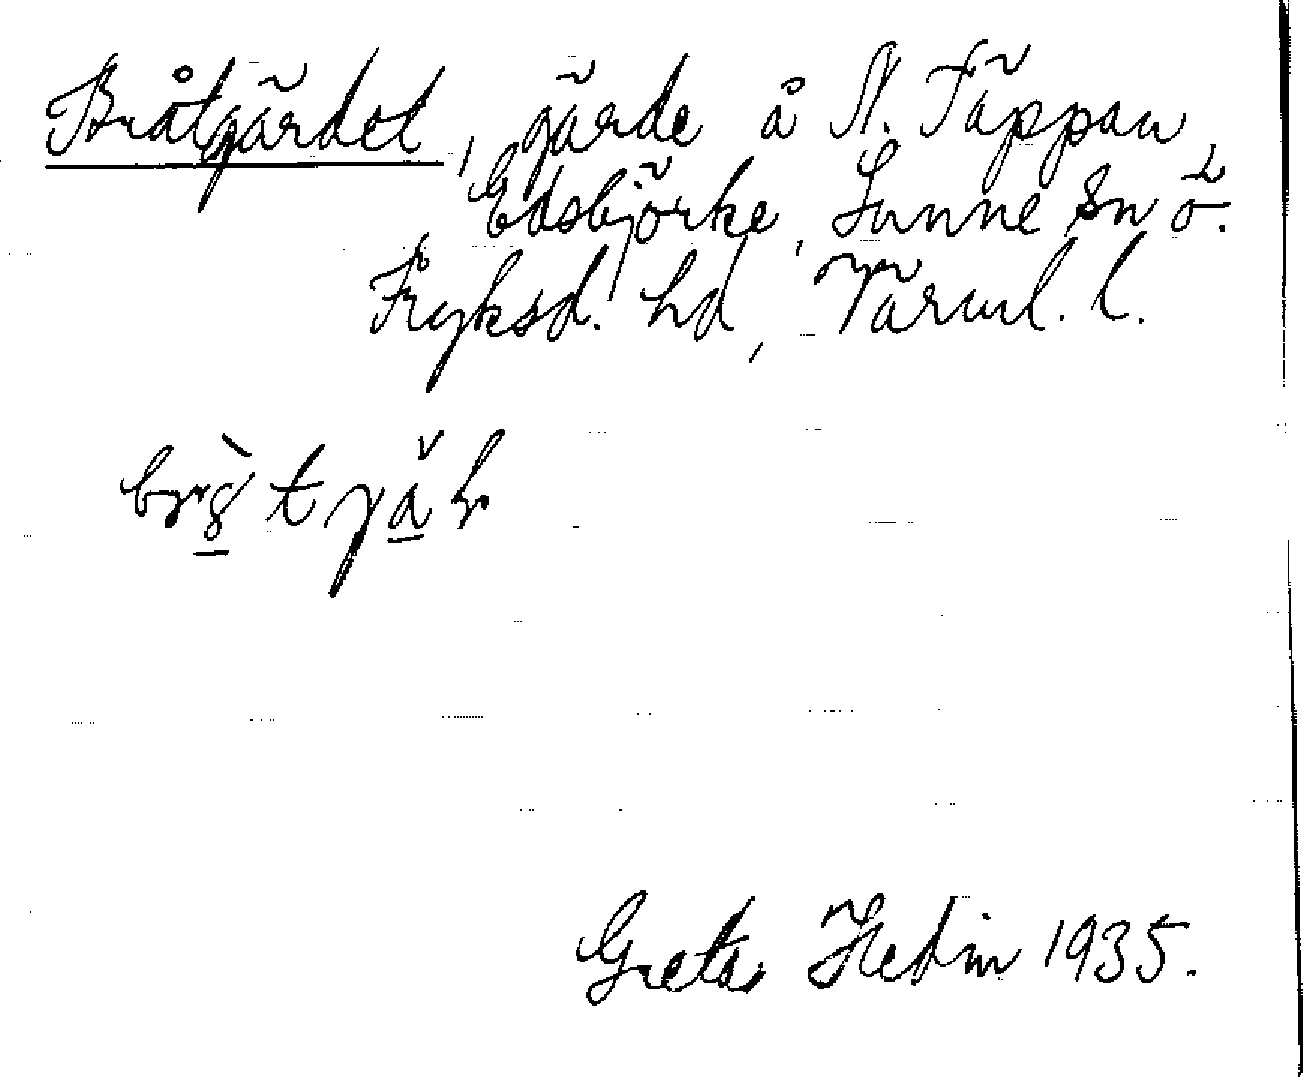 Bråtgärdet, gärde å N. Täppan,
Edsbjörke, Sunne sn ö.
Fryksd. hd, Värml. l.
Greta Hedin 1935.